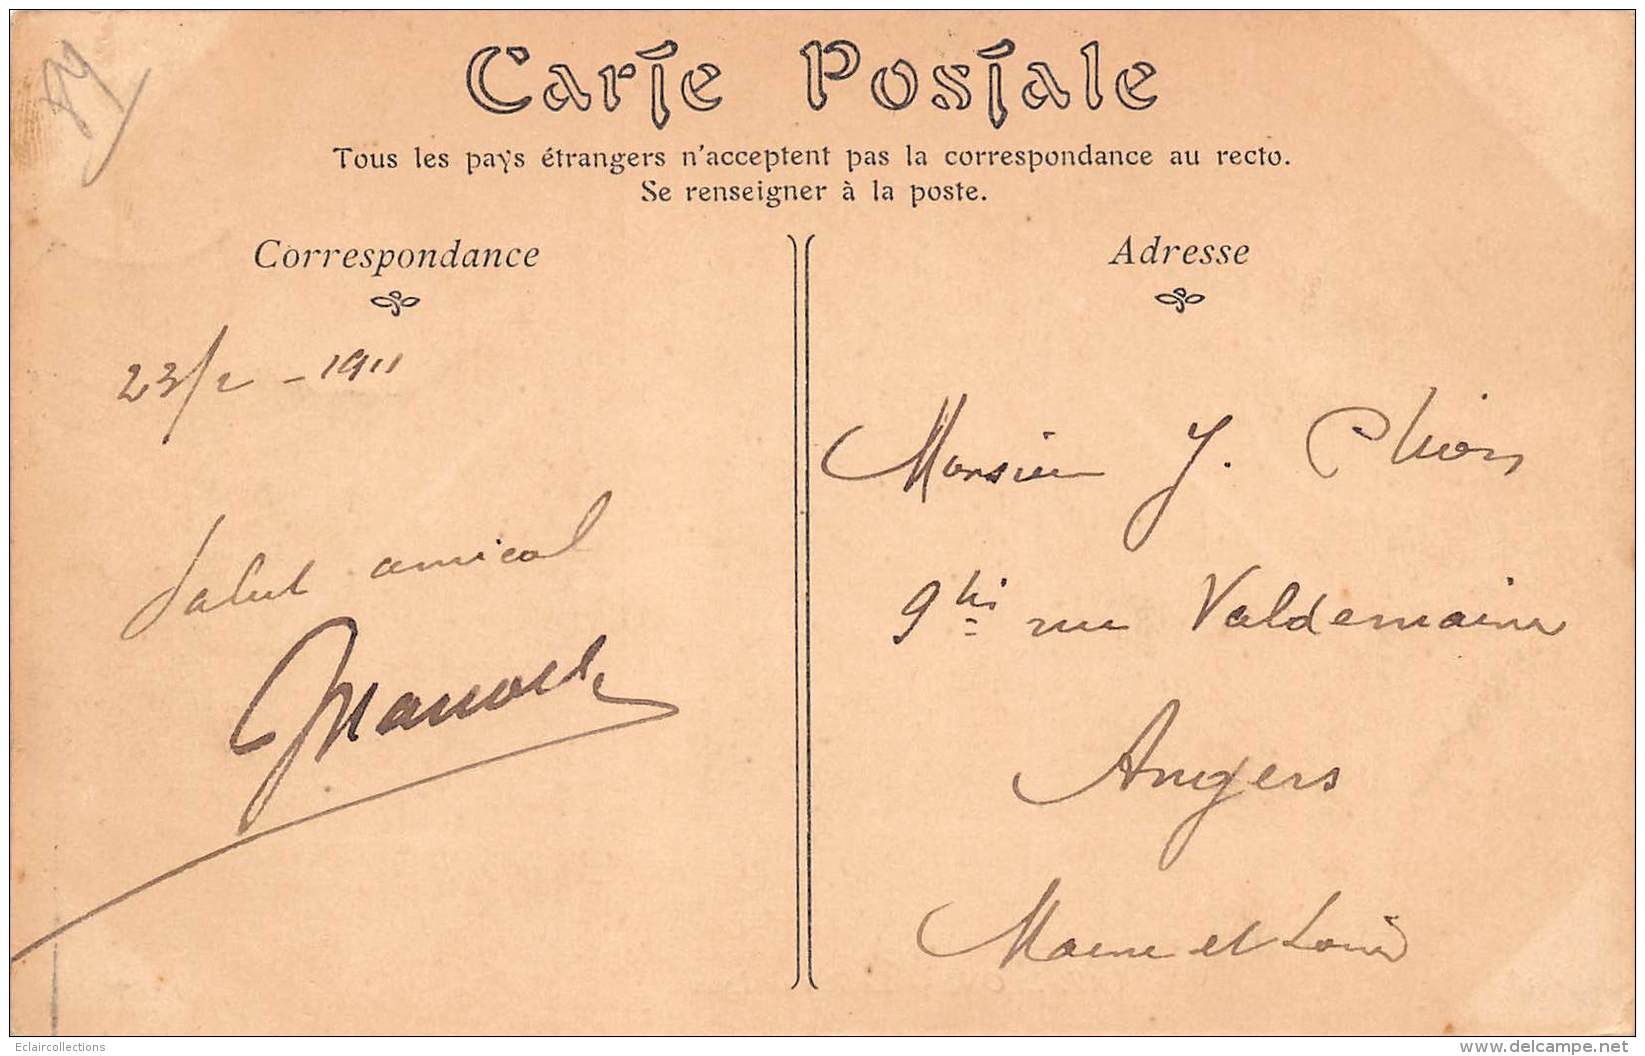 Carte Postale
Tous les pays étrangers n'acceptent pas la correspondance au recto.
Se renseigner à la poste.
Correspondance
23/2 - 1911
Salut amical
Adresse
Monsieur J.
9 bis rue Valdemaine
Angers
Maine et Loire
Eclaircollections
delcampe.net